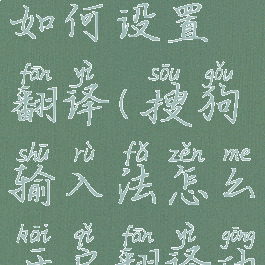 如何设置
fān yì sōu gǒu
翻译(搜狗
shū rù fǎ zěn me
输入法怎么
kāi qǐ fān yì gōng
开启翻译功